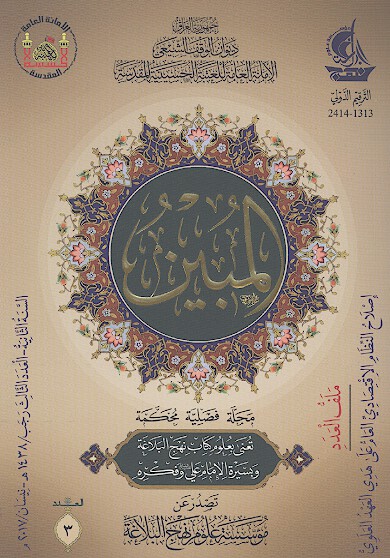 جمهورية العراق
ديوان الوقف الشيعي
الأمانة العامة للعتبة الحسينية المقدسة
الأمانة العامة
للعتبة
الحسينية
المقدسة
الترقيم الدولي
2414-1313
المبين
مجلة فصلية محكمة
تعنى بعلوم كتاب نهج البلاغة
وبسيرة الإمام علي وفكره
تصدر عن
مؤسسة علوم نهج البلاغة
ملف العدد
إصلاح النظام الاقتصادي العام على هدي العهد العلوي
السنة الثانية - العدد الثالث رجب / ١٤٣٨ هـ - نيسان / ٢٠١٧ م
العدد
٣